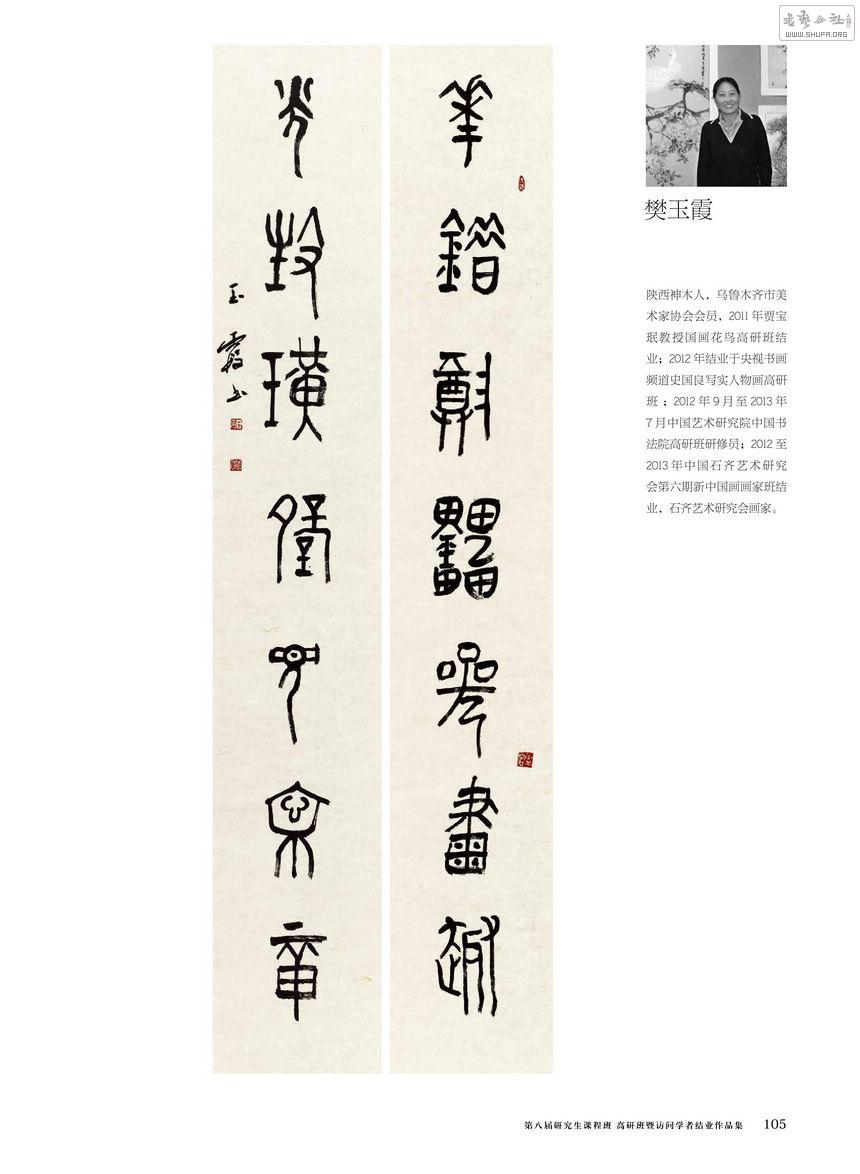 书艺公社
WWW.SHUFA.ORG
華尊罍畫
璜章
玉霞
樊玉霞
陕西神木人，乌鲁木齐市美
术家协会会员，2011 年贾宝
珉教授国画花鸟高研班结
业；2012 年结业于央视书画
频道史国良写实人物画高研
班；2012 年 9 月至 2013 年
7 月中国艺术研究院中国书
法院高研班研修员；2012 至
2013 年中国石齐艺术研究
会第六期新中国画画家班结
业，石齐艺术研究会画家。
第八届研究生课程班 高研班暨访问学者结业作品集 105